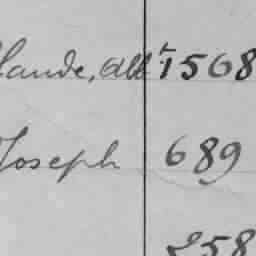 laude, Alb^t 1568
Joseph 689
258